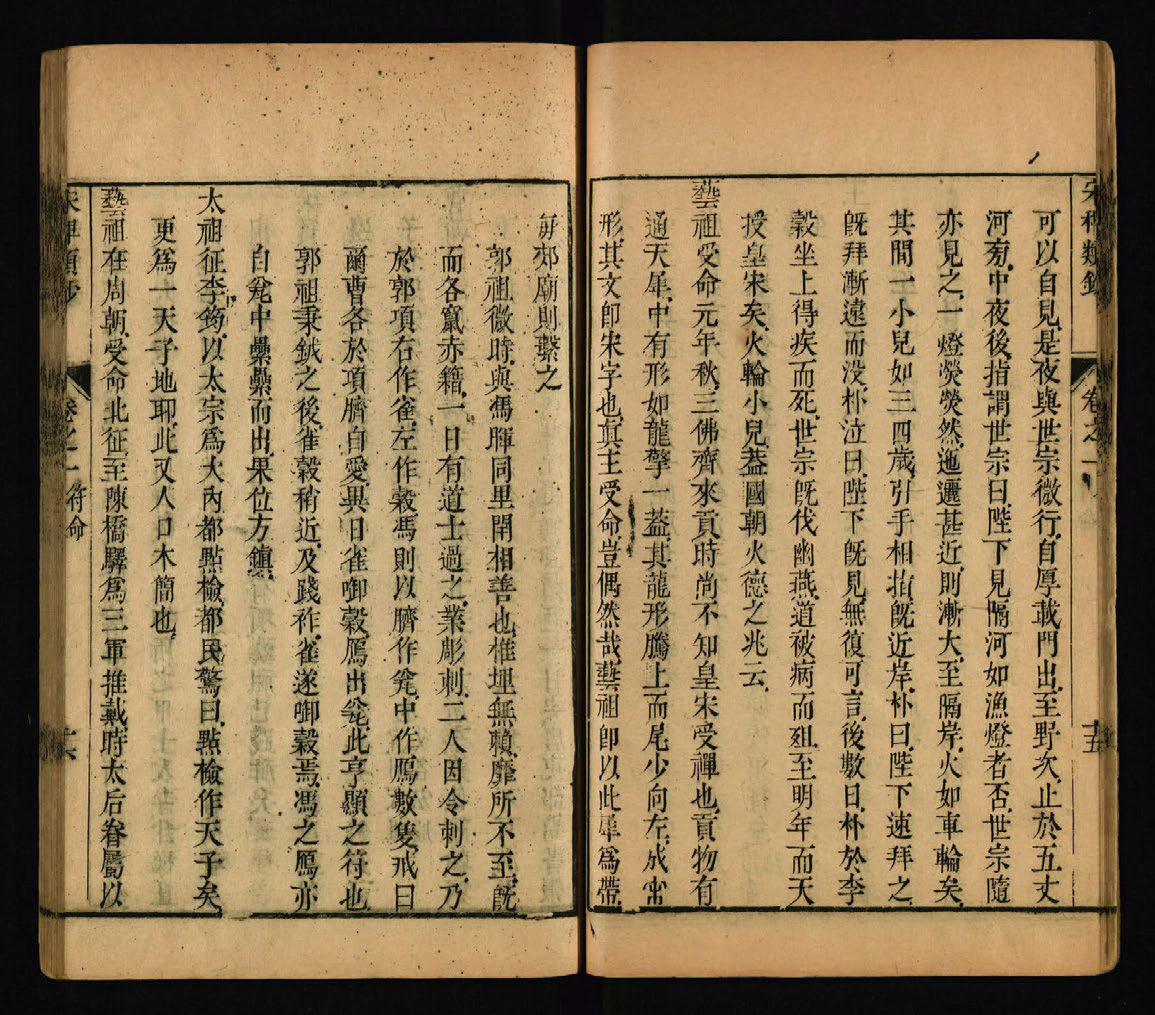 宋稗類鈔
卷之一
十五
可以自見是夜與世宗微行自厚載門出至野次止於五丈
河旁中夜後指謂世宗曰陛下見隔河如漁燈者否世宗隨
亦見之一燈熒熒然迤邐甚近則漸大至隔岸火如車輪矣
其間一小兒如三四歲引手相指既近岸朴曰陛下速拜之
既拜漸遠而没朴泣曰陛下既見無復可言後數日朴於李
穀坐上得疾而死世宗既伐幽燕道被病而殂至明年而天
授皇宋矣火輪小兒葢國朝火德之兆云
藝祖受命元年秋三佛齊來貢時尚不知皇宋受禪也貢物有
通天犀中有形如龍擎一葢其龍形騰上而尾少向左成宋
形其文卽宋字也真主受命豈偶然哉藝祖卽以此犀爲帶
每郊廟則繫之
郭祖微時與馮暉同里閈相善也椎埋無賴靡所不至旣
而各竄赤籍一日有道士過之業彫刺二人因令刺之乃
於郭項右作雀左作穀馮則以臍作瓮中作鴈數隻戒曰
爾曹各於項臍自愛異日雀啣穀鴈出瓮此亨顯之符也
郭祖秉鉞之後雀穀稍近及踐祚雀遂啣穀焉馮之鴈亦
自瓮中纍纍而出果位方鎮
太祖征李筠以太宗爲大內都點檢都民驚曰點檢作天子矣
更爲一天子地耶此又人口木簡也
藝祖在周朝受命北征至陳橋驛爲三軍推戴時太后眷屬以
宋稗類鈔
卷之一 符命
十六